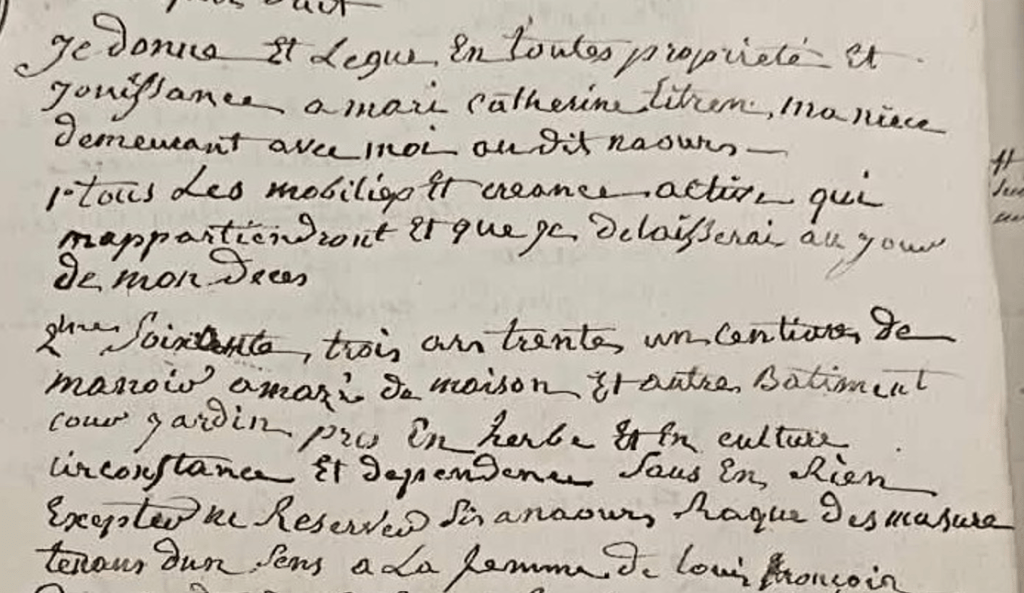 je donne Et Legue En toutes propriété Et
jouissance a mari Catherine titren, ma niece
demeurant avec moi au dit naours
1° tous Les mobiliés Et creance active qui
mappartiendront Et que je Delaisserai au jour
de mon Deces
2me Soixante, trois ars trente un centiare de
manoir amazé de maison Et autre Batiment
cour jardin pris En herbe Et En culture
circonstance Et dependence Sans En Rien
Excepter ne Reserver Sis a naours, des masure
tenans dun Sens a La femme de louis francois